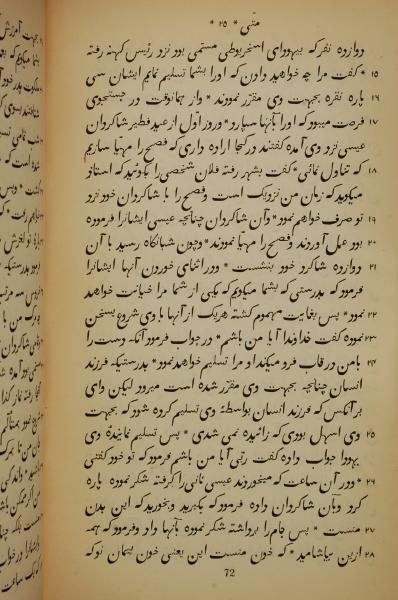 متّی * ۲۵ *
دوازده نفر که بیهودای اسخریوطی مسمی بود نزد رئیس کهنه رفته
۱۵ * گفت مرا چه خواهید دادن که اورا بشما تسلیم نمایم ایشان سی
۱۶ پاره نقره بجهت وی مقرّر نمودند * واز همانوقت در جستجوی
۱۷ فرصت میبود که اورا بآنها سپارد * ودر روز اوّل از عید فطیر شاگردان
عیسی نزد وی آمده گفتند در کجا اراده داری که فصح را مهیّا سازیم
۱۸ که تناول نمائی * گفت بشهر رفته فلان شخص را بگوئید که استاد
میگوید که زمان من نزدیک است وفصح را با شاگردان خود نزد
۱۹ تو صرف خواهم نمود * وآن شاگردان چنانچه عیسی ایشانرا فرموده
۲۰ بود عمل آوردند وفصح را مهیّا نمودند * وچون شبانگاه رسید با آن
۲۱ دوازده شاگرد خود بنشست * ودر اثنای خوردن آنها ایشانرا
فرمود که بدرستی که بشما میگویم که یکی از شما مرا خیانت خواهد
۲۲ نمود * پس بغایت مهموم گشته هر یک از آنها با وی شروع بسخن
۲۳ نموده گفت خداوندا آیا من باشم * در جواب فرمود آنکه دست را
۲۴ با من در قاب فرو میکند او مرا تسلیم خواهد نمود * بدرستیکه فرزند
انسان چنانچه بجهت وی مقرّر شده است میرود لیکن وای
بر آنکس که فرزند انسان بواسطهٔ وی تسلیم کرده شود که بجهت
۲۵ وی اسهل بودی که زائیده نمی شدی * پس تسلیم نمایندهٔ وی
یهودا جواب داده گفت ربّی آیا من باشم فرمود که تو خود گفتی
۲۶ * ودر آن ساعت که میخوردند عیسی نانی را گرفته شکر نموده پاره
کرد وبآن شاگردان داده فرمود که بگیرید وبخورید که این بدن
۲۷ منست * پس جام را برداشته شکر نموده بآنها داد وفرمود که همه
۲۸ ازین بیاشامید * که خون منست این یعنی خون پیمان نو که
72